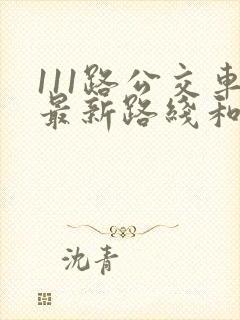 111路公交车
最新路线和
沈青